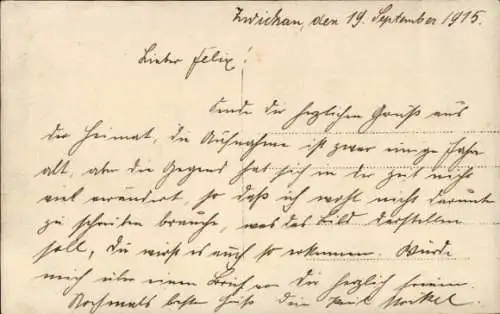 Zwickau, den 19. September 1915.
Lieber Felix!
Sende dir herzlichen Gruß aus
der Heimat, die Aufnahme ist zwar einige Jahre
alt, aber die Gegend hat sich in der Zeit nicht
viel verändert, so daß ich wohl nicht darunter
zu schreiben brauche, was das Bild darstellen
soll, du wirst es auch so erkennen. Würde
mich über einen Brief von dir herzlich freuen.
Nochmals besten Gruß dein